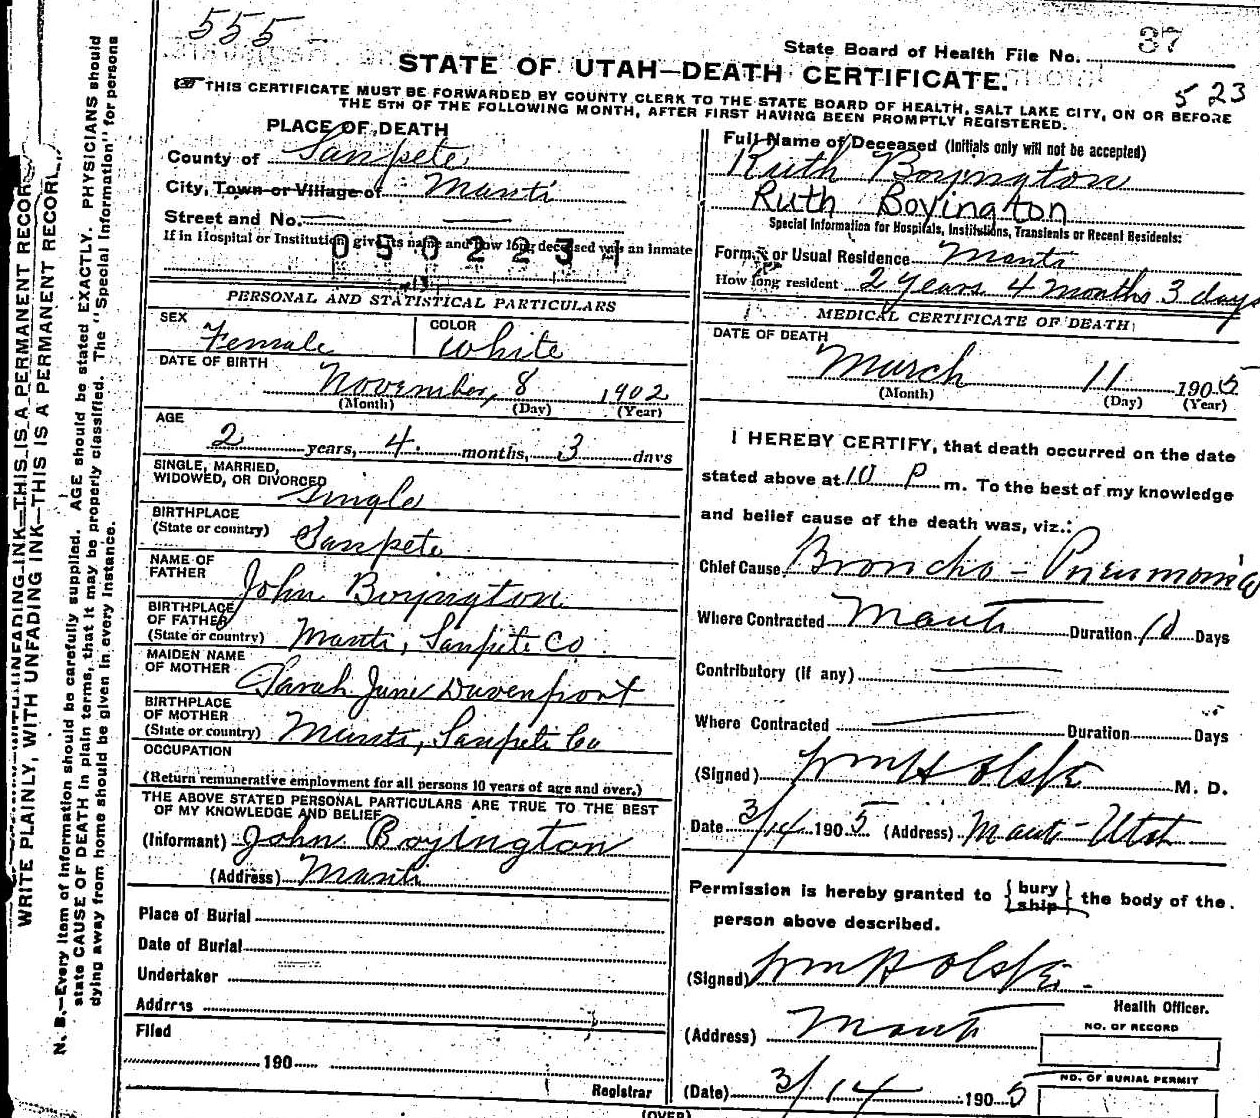 555
State Board of Health File No. 37
STATE OF UTAH—DEATH CERTIFICATE.
523
THIS CERTIFICATE MUST BE FORWARDED BY COUNTY CLERK TO THE STATE BOARD OF HEALTH, SALT LAKE CITY, ON OR BEFORE
THE 5TH OF THE FOLLOWING MONTH, AFTER FIRST HAVING BEEN PROMPTLY REGISTERED.
WRITE PLAINLY, WITH UNFADING INK—THIS IS A PERMANENT RECORD
N. B.—Every item of information should be carefully supplied. AGE should be stated EXACTLY. PHYSICIANS should
state CAUSE OF DEATH in plain terms, that it may be properly classified. The "Special Information" for persons
dying away from home should be given in every instance.
PLACE OF DEATH
County of Sanpete
City, Town or Village of Manti
Street and No.
If in Hospital or Institution, give its name and how long deceased was an inmate
050223
PERSONAL AND STATISTICAL PARTICULARS
SEX Female
COLOR White
DATE OF BIRTH
November, 8 1902
(Month) (Day) (Year)
AGE
2 years, 4 months, 3 days
SINGLE, MARRIED,
WIDOWED, OR DIVORCED Single
BIRTHPLACE
(State or country) Sanpete
NAME OF
FATHER John Boyington
BIRTHPLACE
OF FATHER
(State or country) Manti, Sanpete Co
MAIDEN NAME
OF MOTHER Sarah Jane Davenport
BIRTHPLACE
OF MOTHER
(State or country) Manti, Sanpete Co
OCCUPATION
(Return remunerative employment for all persons 10 years of age and over.)
THE ABOVE STATED PERSONAL PARTICULARS ARE TRUE TO THE BEST
OF MY KNOWLEDGE AND BELIEF
(Informant) John Boyington
(Address) Manti
Place of Burial
Date of Burial
Undertaker
Address
Filed
190
Registrar
Full Name of Deceased (Initials only will not be accepted)
Ruth Boyington
Ruth Boyington
Special Information for Hospitals, Institutions, Transients or Recent Residents:
Former or Usual Residence Manti
How long resident 2 years 4 months 3 days
MEDICAL CERTIFICATE OF DEATH
DATE OF DEATH
March 11 1905
(Month) (Day) (Year)
I HEREBY CERTIFY, that death occurred on the date
stated above at 10 P m. To the best of my knowledge
and belief cause of the death was, viz.:
Chief Cause Broncho - Pneumonia
Where Contracted Manti Duration 10 Days
Contributory (if any)
Where Contracted Duration Days
(Signed) Wm H Olste M. D.
Date 3/14 1905 (Address) Manti - Utah
Permission is hereby granted to {bury ship} the body of the
person above described.
(Signed) Wm H Olste
Health Officer.
(Address) Manti
NO. OF RECORD
(Date) 3/14 1905
NO. OF BURIAL PERMIT
(OVER)